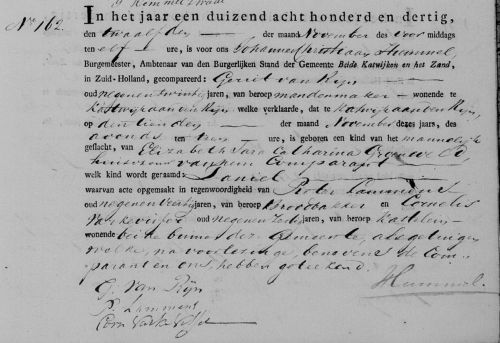 No. 162.
In het jaar een duizend acht honderd en dertig,
den twaalfden der maand November des voor middags
ten elf ure, is voor ons Johannes Christiaan Hummel,
Burgemeester, Ambtenaar van den Burgerlijken Stand der Gemeente Beide Katwijken en het Zand,
in Zuid-Holland, gecompareert: Gerrit van Rijn
oud negenentwintig jaren, van beroep mandenmaker wonende te
Katwijk aan den Rijn, welke verklaarde, dat te Katwijk aan den Rijn,
op den tienden der maand November dezes jaars, des
avonds ten ure, is geboren een kind van het mannelijk
geslacht, van Elizabeth Sara Catharina
huisvrouw van hem Comparant
welk kind word geraamd: Daniel
waarvan acte opgemaakt in tegenwoordigheid van Pieter Lammens
oud negenenveertig jaren, van beroep Broodbakker en Cornelis
oud negenen jaren, van beroep
wonende beide binnen deze Gemeente, als getuigen
welke, na voorlezinge, benevens de Com-
parant en ons, hebben geteekend.
G. Van Rijn
P. Lammens
Hummel.